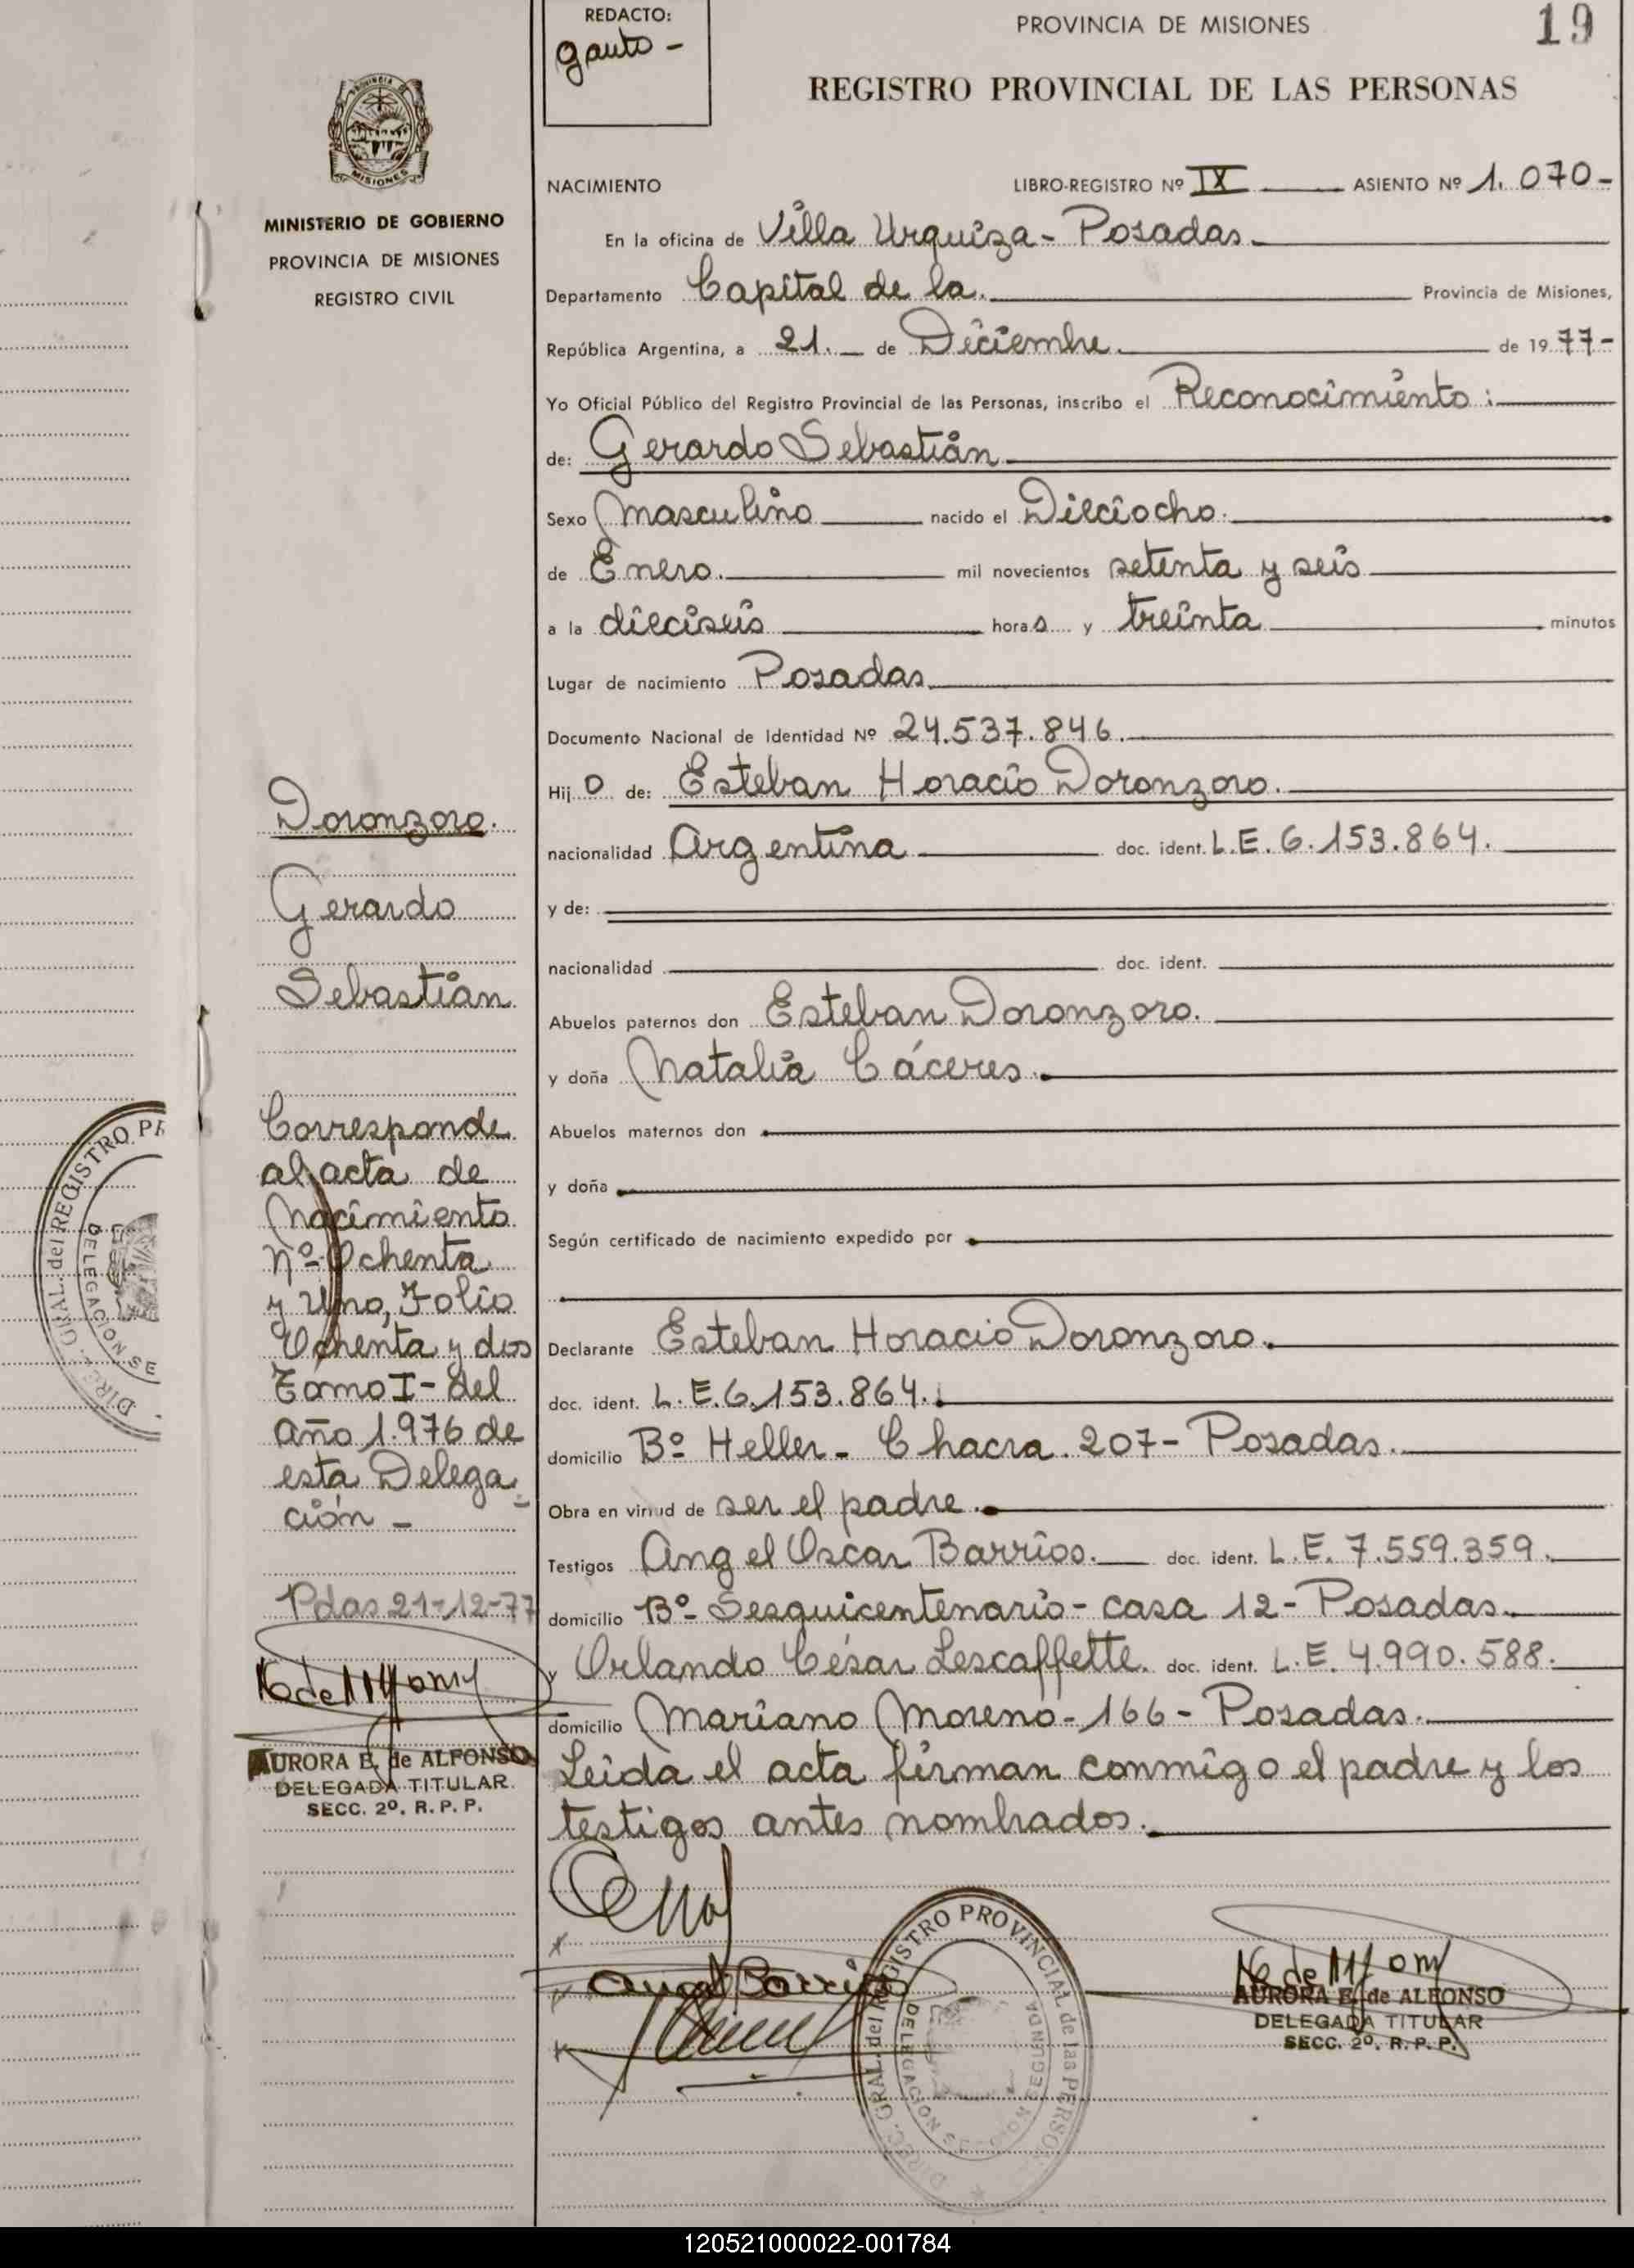 REDACTO:
Gauto -
PROVINCIA DE MISIONES
19
REGISTRO PROVINCIAL DE LAS PERSONAS
MISIONES
MINISTERIO DE GOBIERNO
PROVINCIA DE MISIONES
REGISTRO CIVIL
NACIMIENTO LIBRO-REGISTRO Nº IX ASIENTO Nº 1.070-
En la oficina de Villa Urquiza - Posadas.
Departamento Capital de la. Provincia de Misiones,
República Argentina, a 21. de Diciembre. de 1977-
Yo Oficial Público del Registro Provincial de las Personas, inscribo el Reconocimiento:
de: Gerardo Sebastián
Sexo Masculino nacido el Dieciocho.
de Enero. mil novecientos setenta y seis
a la dieciseis horas y treinta minutos
Lugar de nacimiento Posadas.
Documento Nacional de Identidad Nº 24.537.846.
Hijo de: Esteban Horacio Doronzoro.
nacionalidad Argentina doc. ident. L.E.6.153.864.
y de:
nacionalidad doc. ident.
Abuelos paternos don Esteban Doronzoro.
y doña Natalia Cáceres.
Abuelos maternos don
y doña
Según certificado de nacimiento expedido por
Declarante Esteban Horacio Doronzoro.
doc. ident. L.E.6.153.864.
domicilio Bº Heller - Chacra 207 - Posadas.
Obra en virtud de ser el padre.
Testigos Angel Oscar Barrios. doc. ident. L.E. 7.559.359.
domicilio Bº Sesquicentenario - casa 12 - Posadas.
y Orlando César Lescaffette. doc. ident. L.E. 4.990.588.
domicilio Mariano Moreno - 166 - Posadas.
Leida el acta firman conmigo el padre y los
testigos antes nombrados.
Doronzoro.
Gerardo
Sebastián
Corresponde
al acta de
Nacimiento
Nº Ochenta
y Uno, Folio
Ochenta y dos
Tomo I - del
año 1.976 de
esta Delega-
ción -
Pdas 21-12-77
AURORA E. de ALFONSO
DELEGADA TITULAR
SECC. 2º. R. P. P.
DIREC. GRAL. del REGISTRO PROVINCIAL de las PERSO
DELEGACION SE
SEGUNDA
AURORA E. de ALFONSO
DELEGADA TITULAR
SECC. 2º. R. P. P.
DIREC. GRAL. del REGISTRO PR
DELEGACION SE
120521000022-001784